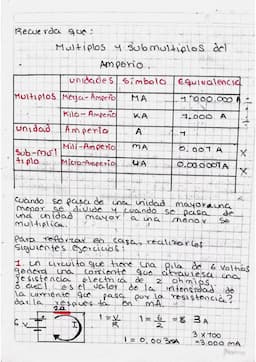 Recuerda que:
Multiplos y Submultiplos del
Amperio.
unidades Simbolo Equivalencia
Multiplos Mega-Amperio MA 1'000.000 A
Kilo-Amperio KA 1.000 A
unidad Amperio A 1
Sub-mul tiplo Mili-Amperio mA 0.001 A X
Micro-Amperio uA 0.000001A X
Cuando se pasa de una unidad mayor a una
menor se divide y cuando se pasa de
una unidad mayor a una menor se
multiplica.
Para reforzar en casa, realizar los
siguientes Ejercicios:
1. un circuito que tiene una pila de 6 voltios
genera una corriente que atraviesa una
resistencia electrica de 2 ohmios
es el valor de la intensidad de
la corriente que pasa por la resistencia?
dar la respuesta en mA.
2Ω
6 V I I = V/R I = 6/2 = 3 A
I = 0.003 3 x 100
= 3.000 mA